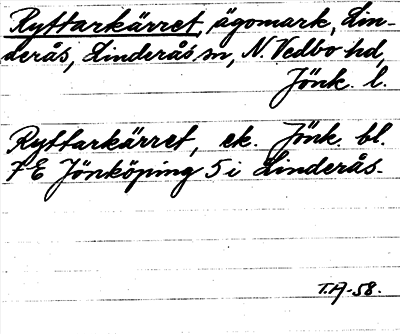 Ryttarkärret, ägomark, Lin-
derås, Linderås sn, N. Vedbo hd,
Jönk. l.
Ryttarkärret, ek. Jönk. bl.
7E Jönköping 5i Linderås.
T.A-58.